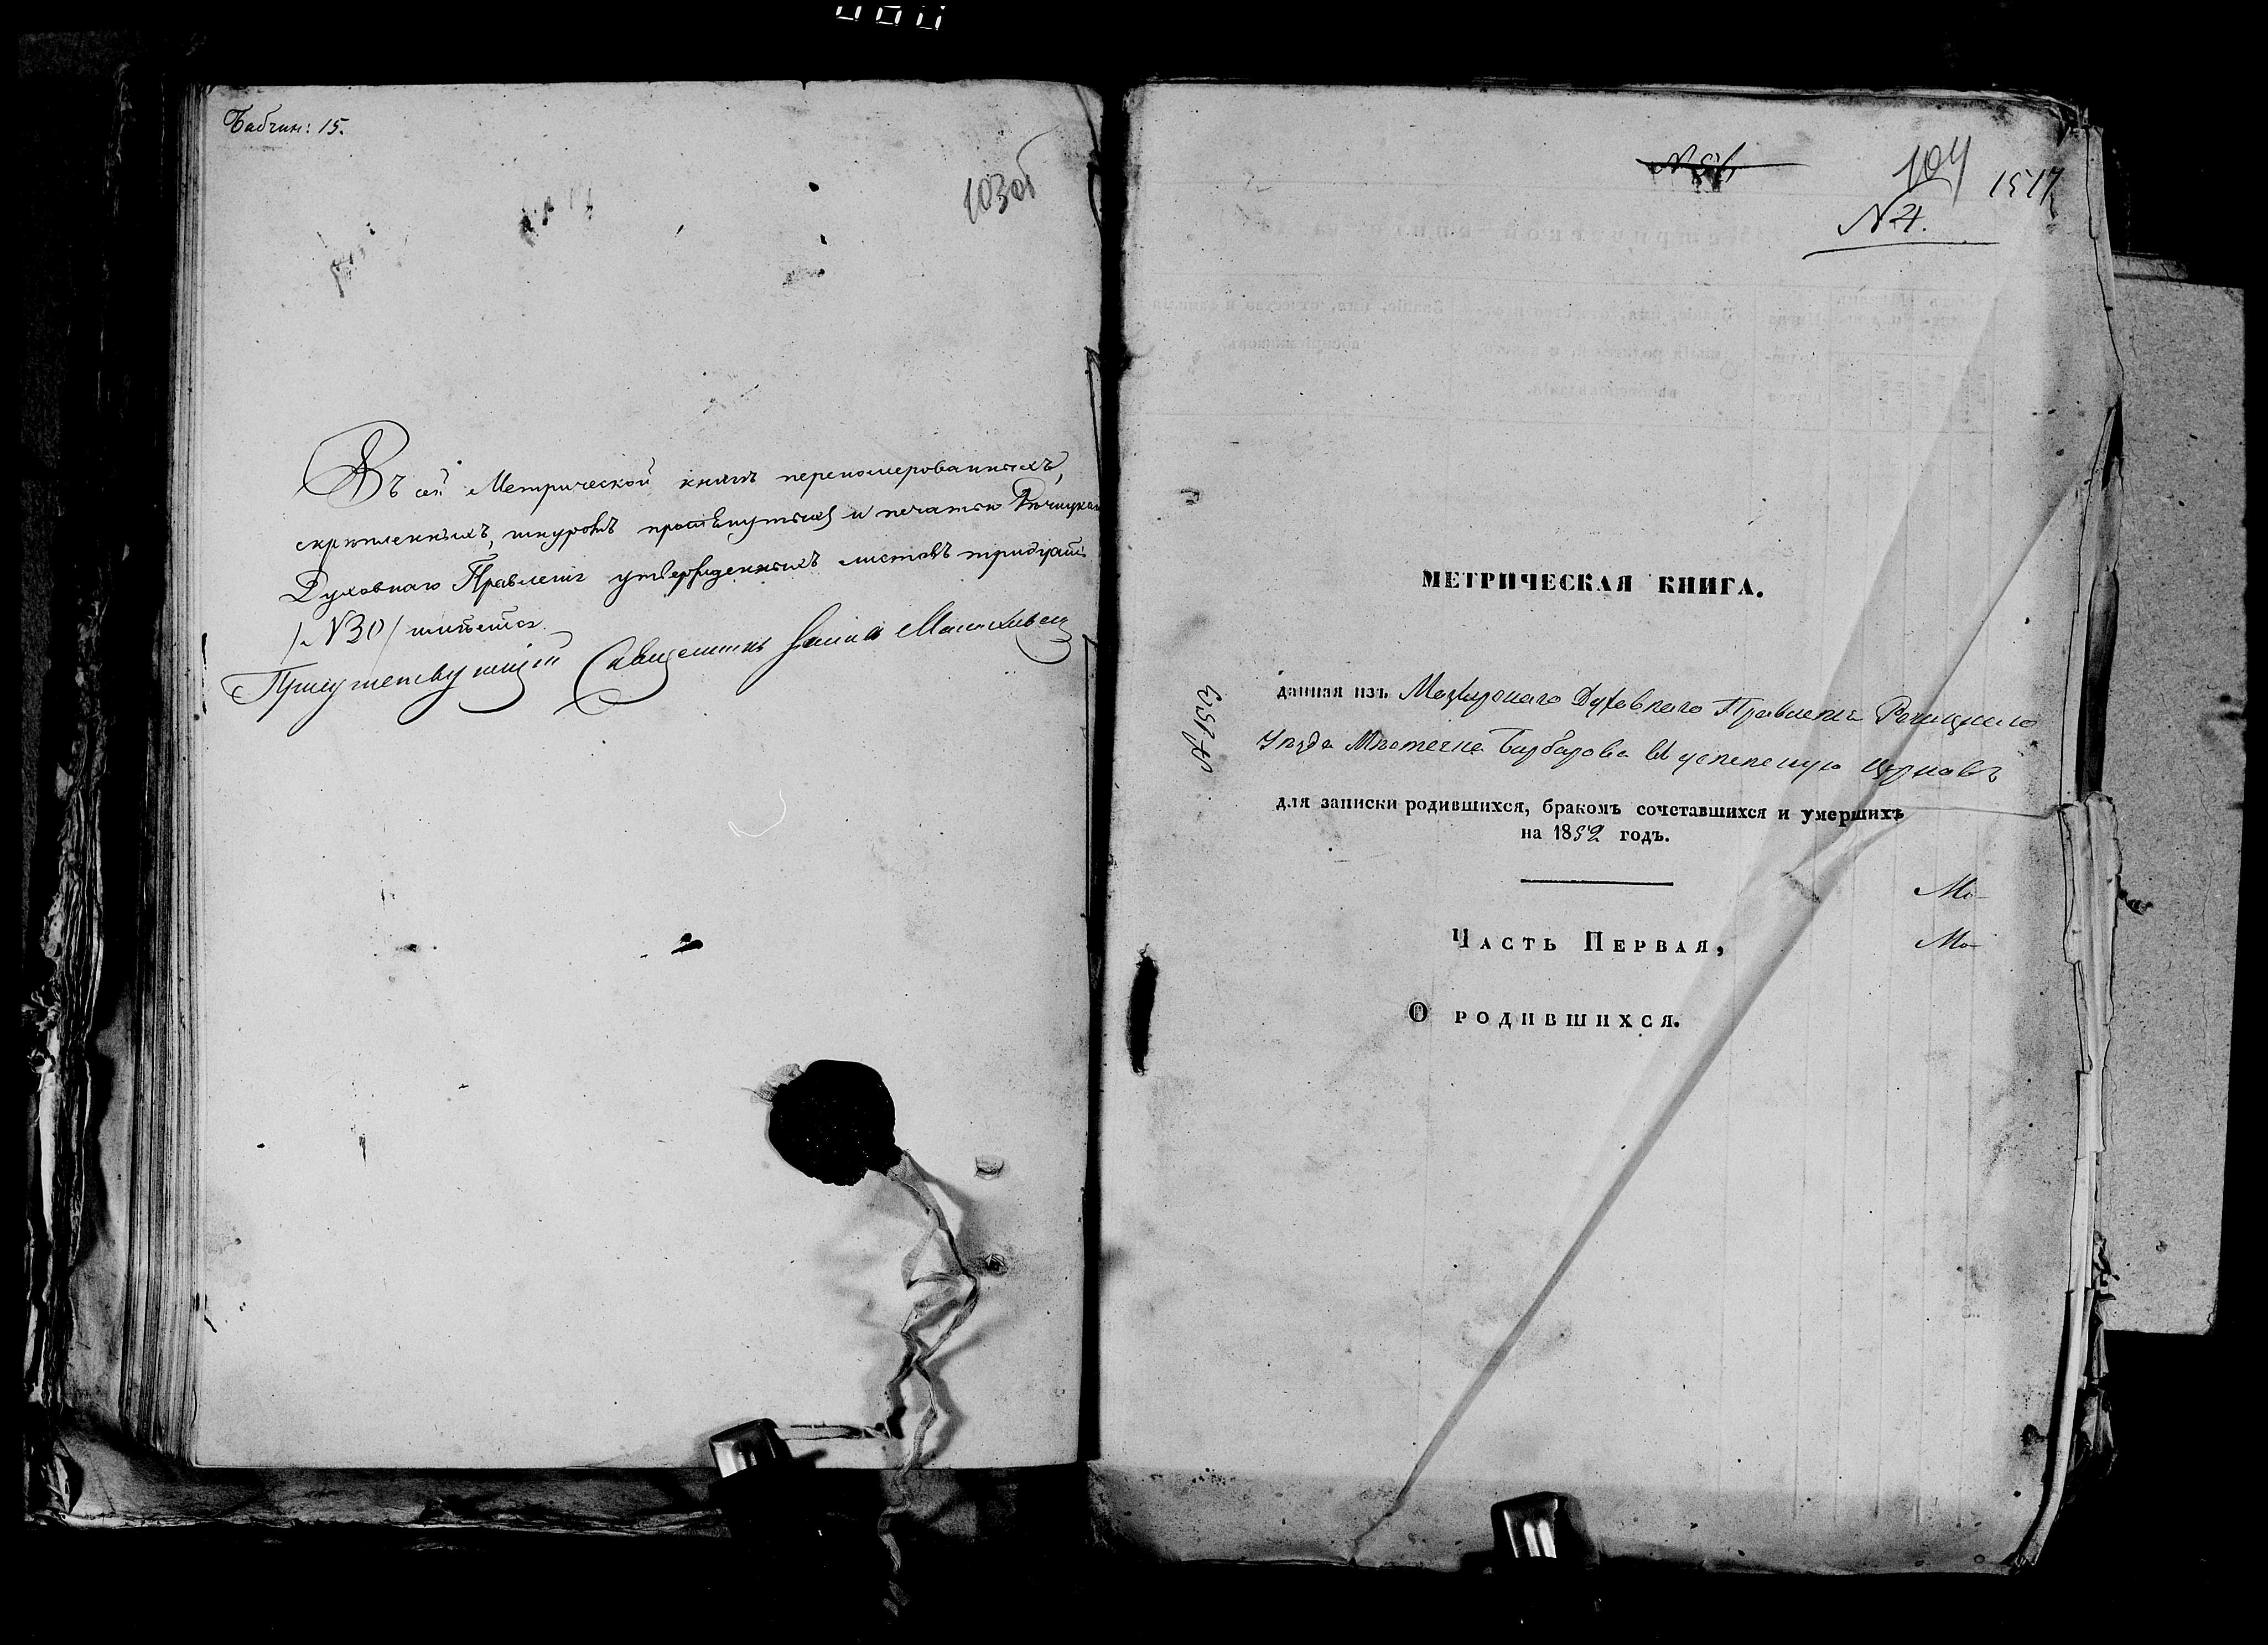 Бабчин: 15.
103об
Въ сей Метрической книгѣ перенумерованныхъ,
скрѣпленныхъ, шнуромъ протянутыхъ и печатью Рѣчицкаго
Духовнаго Правленія утвержденныхъ листовъ тридцать
/№30/ имѣется.
Присутствующій Священникъ
104
1517
N 4.
МЕТРИЧЕСКАЯ КНИГА.
данная изъ Мозырскаго Духовнаго Правленія Рѣчицкаго
Уѣзда Мѣстечка Барбарова въ Успенскую Церковь
для записки родившихся, бракомъ сочетавшихся и умершихъ
на 1852 годъ.
Мо-
Часть Первая,
Мо-
О родившихся.